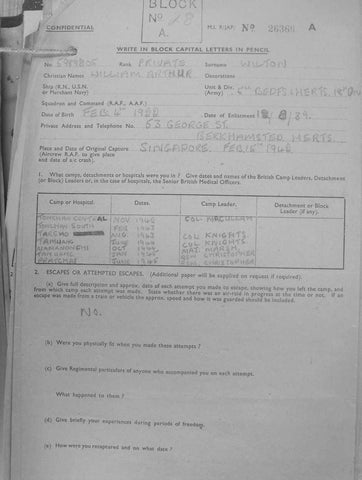 BLOCK
Nº 18
A.
CONFIDENTIAL
M.I. 9/JAP/ Nº 26369 A
WRITE IN BLOCK CAPITAL LETTERS IN PENCIL
No. Rank PRIVATE Surname WILTON
Christian Names WILLIAM ARTHUR Decorations
Ship (R.N., U.S.N. or Merchant Navy) Unit & Div. (Army) BEDFS. HERTS. 18th DIV
Squadron and Command (R.A.F., A.A.F.)
Date of Birth FEB. Date of Enlistment
Private Address and Telephone No. 53 GEORGE ST.
BERKHAMSTED HERTS.
Place and Date of Original Capture SINGAPORE. FEB 15th 1942
(Aircrew R.A.F. to give place and date of a.c. crash).
1. What camps, detachments or hospitals were you in? Give dates and names of the British Camp Leaders, Detachment (or Block) Leaders or, in the case of hospitals, the Senior British Medical Officers.
Camp or Hospital. Dates. Camp Leader. Detachment or Block Leader (if any).
CENTRAL NOV 1942 COL
SOUTH FEB 1943
AUG 1943 COL KNIGHTS
TAMUANG COL KNIGHTS
OCT MAJ MARSH
JAN 1945 CHRISTOPHER
JUNE 1945 CHRISTOPHER
2. ESCAPES OR ATTEMPTED ESCAPES. (Additional paper will be supplied on request if required).
(a) Give full description and approx. date of each attempt you made to escape, showing how you left the camp, and from which camp each attempt was made. State whether there was an air-raid in progress at the time or not. If an escape was made from a train or vehicle the approx. speed and how it was guarded should be included.
No.
(b) Were you physically fit when you made these attempts?
(c) Give Regimental particulars of anyone who accompanied you on each attempt.
What happened to them?
(d) Give briefly your experiences during periods of freedom.
(e) How were you recaptured and on what date?